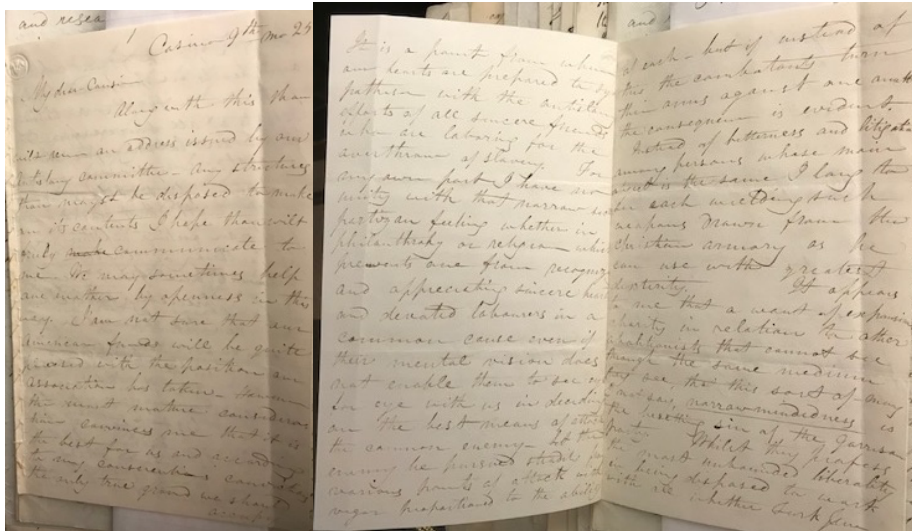 and regea
Casino 9th mo 25
My dear Cousin
Along with this thou
wilt recv an address issued by our
Antislavy committee - Any strictures
thou mayst be disposed to make
on its contents I hope thou wilt
freely communicate to
me. We may sometimes help
one another by openness in this
way. I am not sure that our
American funds will be quite
pleased with the position our
association has taken. However
the most mature consideration
convinces me that it is
the best for us and according
to my conscientious convictions
the only true ground we should
occupy
It is a point from whence
our hearts are prepared to sym
pathise with the antislavery
efforts of all sincere friends
who are laboring for the
overthrow of slavery. For
my own part I have no
unity with that narrow
partizan feeling whether in
philanthrophy or religion which
prevents one from recognizing
and appreciating sincere hearts
and devoted labourers in a
common cause even if
their mental vision does
not enable them to see eye
for eye with us in deciding
on the best means of attack
the common enemy - let the
enemy be pursued steadily
various points of attack with
vigor proportioned to the ability
of each - but if instead of
this the combatants turn
their arms against one another
the consequence is evident,
Instead of bitterness and litigation
among persons whose main
object is the same I long to
see each wielding such
weapons drawn from the
christian armory as he
can use with greatest
dexterity. It appears
to me that a want of expansive
charity in relation to other
abolitionists that cannot see
through the same medium
they see this sort of may
I not say, narrowmindedness is
the besetting sin of the Garrison
party. Whilst they profess
the most unbounded liberality
in being disposed to work
with all whether